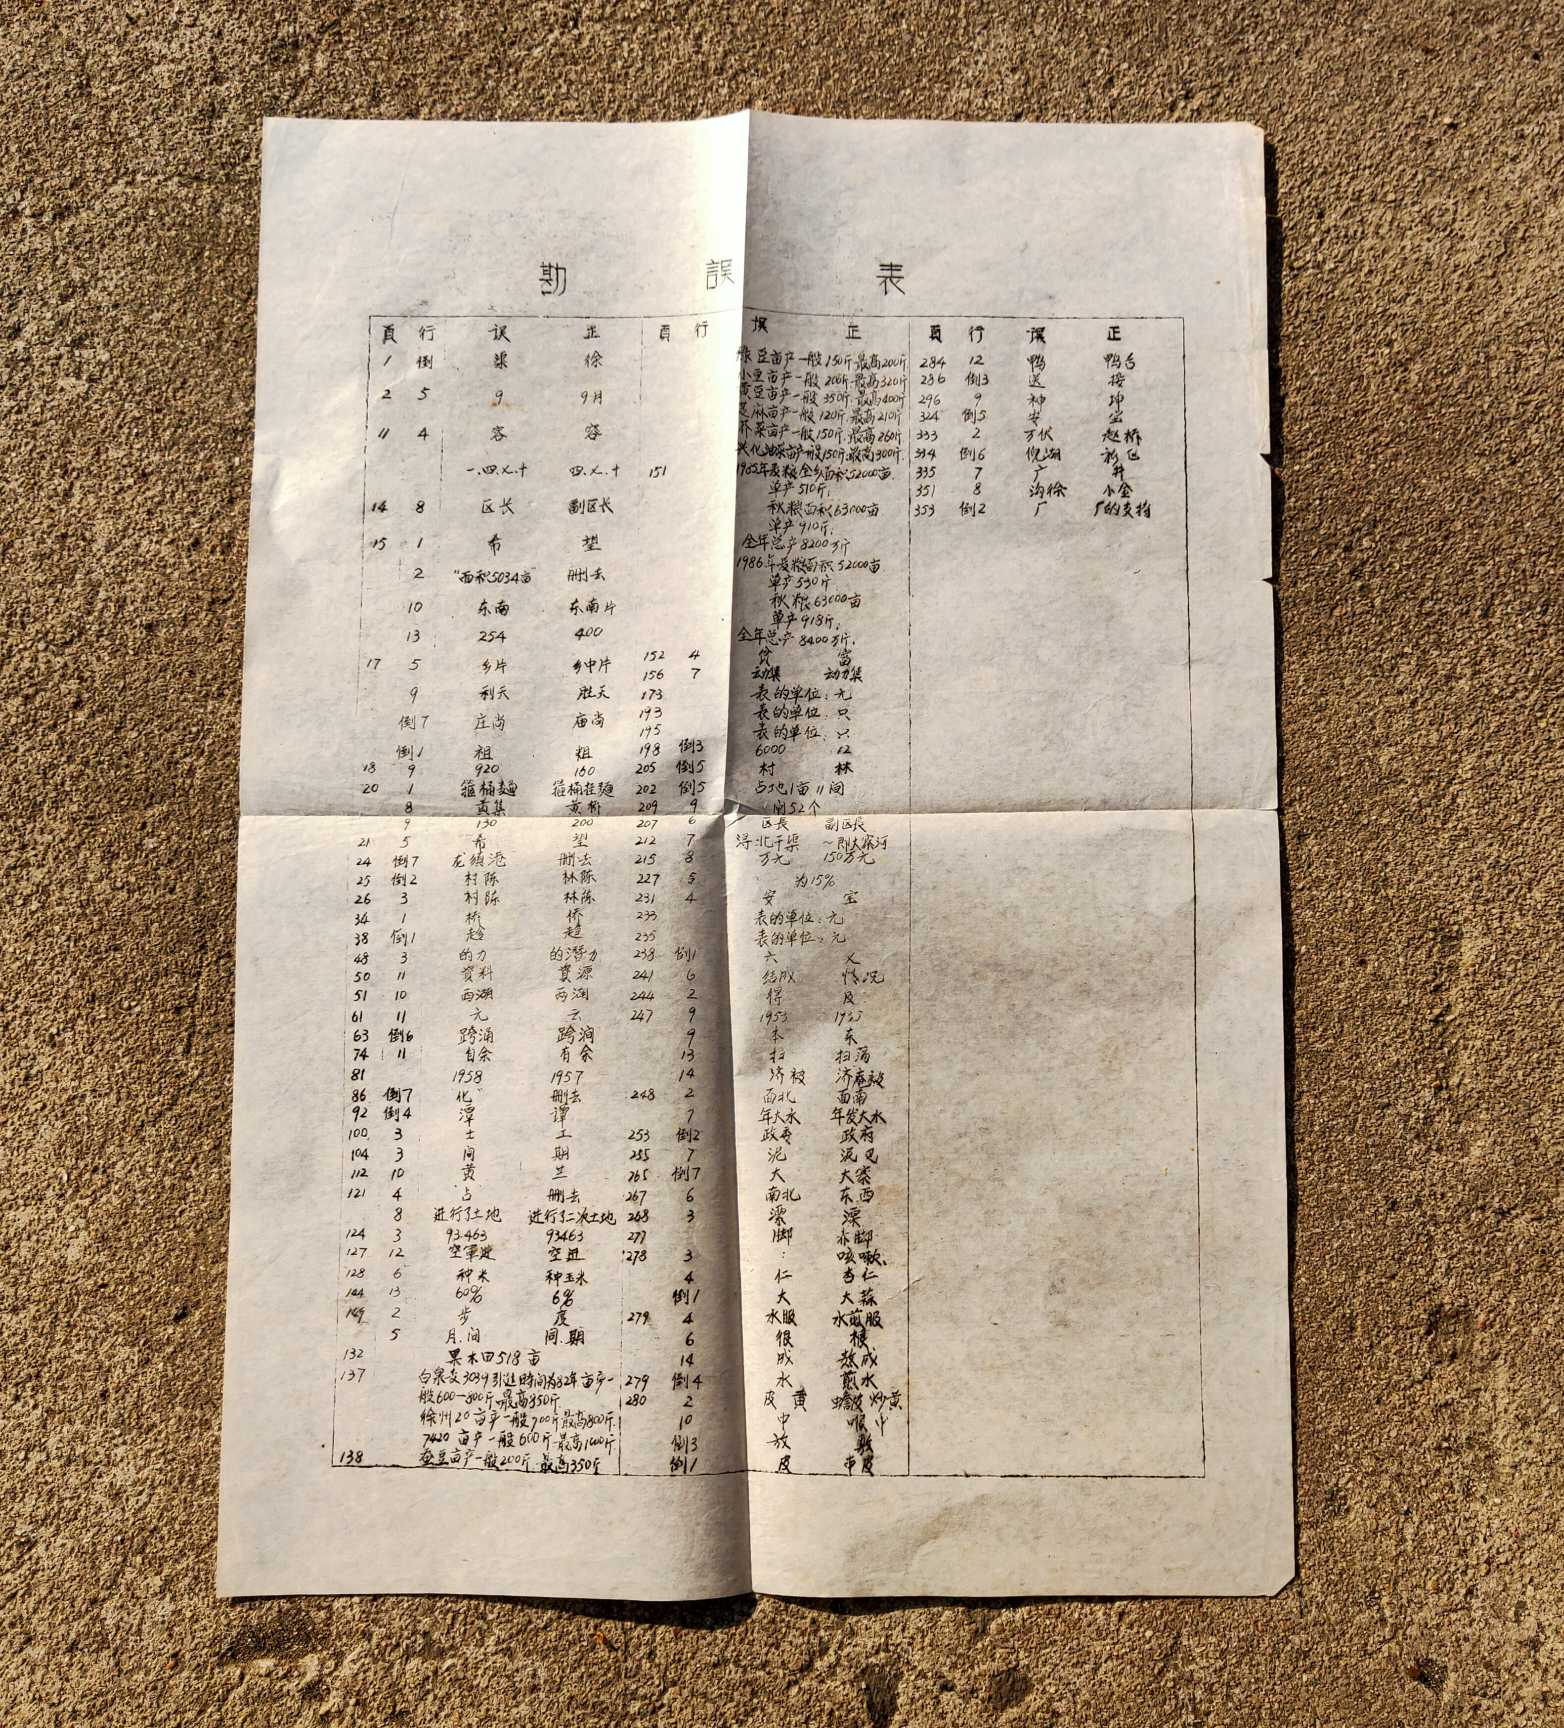 勘 誤 表
頁 行 误 正
1 倒 梁 徐
2 5 9 9月
11 4 容 容
一.四.乂.十 四.乂.十
14 8 区长 副区长
15 1 希 望
2 "面积5034亩" 删去
10 东南 东南片
13 254 400
17 5 乡片 乡中片
9 利天 胜天
倒7 庄尚 庙尚
倒1 祖 粗
18 9 920 160
20 1 箍桶麺 箍桶挂麺
8 黄集 黄桥
9 130 200
21 5 希 望
24 倒7 龙须港 删去
25 倒2 村陈 林陈
26 3 村陈 林陈
34 1 桥 侨
38 倒1
48 3 的力 的潜力
50 11 资料 资源
51 10 西湖
61 11 元 云
63 倒6 跨涌 跨涧
74 11 自余 有余
81 1958 1957
86 倒7 化 删去
92 倒4 潭 谭
100 3 士 工
104 3 间 期
112 10 黄 兰
121 4 占 删去
8 进行了土地 进行了二次土地
124 3 93.463 93463
127 12 空軍进 空进
128 6 种米 种玉米
144 13 60% 6%
149 2 步 度
5 月.间 间.期
132 果木田518亩
137 白泉麦3039引进时间为82年亩产一
般600一800斤.最高850斤
徐州20亩产一般700斤最高800斤
7420亩产一般600斤最高1000斤
138 蚕豆亩产一般200斤最高350斤
頁 行 误 正
绿豆亩产一般150斤.最高200斤
小豆亩产一般200斤.最高320斤
黄豆亩产一般350斤.最高400斤
芝麻亩产一般120斤.最高210斤
芥菜亩产一般150斤.最高260斤
兴化油菜亩产一般150斤.最高300斤.
151 1985年夏粮全乡面积52000亩.
单产510斤;
秋粮面积63000亩
单产910斤;
全年总产8200万斤
1986年夏粮面积52000亩
单产530斤
秋粮63000亩
单产918斤;
全年总产8400万斤.
152 4 贫 富
156 7
173 表的单位:元
193 表的单位:只
195 表的单位:只
198 倒3 6000 12
205 倒5 村 林
202 倒5 占地1亩11间
209 9 间52个
207 6 区長 副区長
212 7 浔:北干渠 ~即大寨河
215 8 万元 150万元
227 5 为15%
231 4 安 宝
233 表的单位:元
235 表的单位:元
238 倒1 六 乂
241 6 结成 情况
244 2 得 及
247 9 1953 1955
9 本 东
13 扫 扫荡
14 济被 济庵被
248 2 西北 西南
7 年大水 年发大水
253 倒2 政 政府
255 7 泥 泥巴
265 倒7 大 大寨
267 6 南北 东西
268 3
277 脚 赤脚
278 3 : 咳嗽、
4 仁 杏仁
倒1 大 大蒜
279 4 水服 水煎服
6 很 根
14 成 熬成
279 倒4 水 煎水
280 2 皮黄 蟾皮炒黄
10 中 喉中
倒3 放 敷
倒1 皮 带皮
頁 行 误 正
284 12 鸭 鸭舌
286 倒3 送 接
296 9 神 坤
324 倒5 安 宝
333 2 万伏 赵桥
334 倒6
335 7 广 井
351 8 沟徐 小金
353 倒2 厂 厂的支持